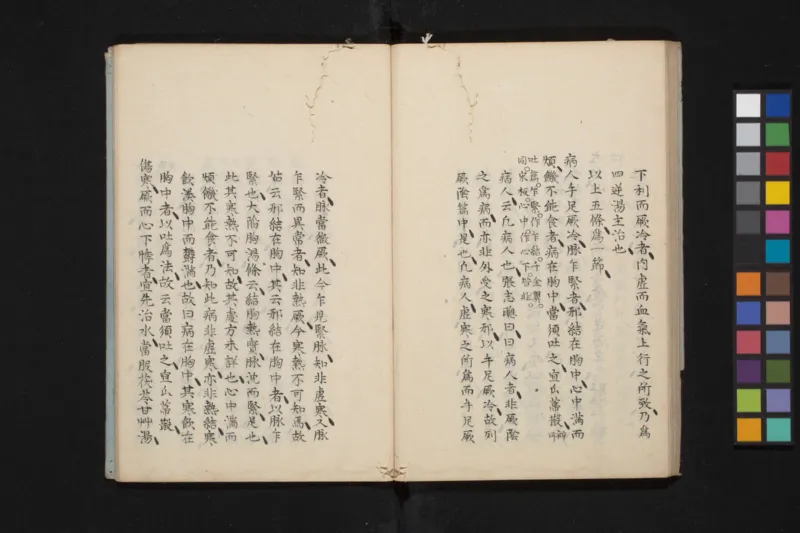 下利而厥冷者内虛而血氣上行之所致乃爲
四逆湯主治也
以上五條爲一節
病人手足厥冷脉乍緊者邪結在胸中心中滿而
煩饑不能食者病在胸中當須吐之宜瓜蒂散
病人云凡病人也張志聰曰曰病人者非厥陰
之爲病而亦非外受之寒邪以手足厥冷故列
厥陰篇中是也凡病人虛寒之所爲而手足厥
冷者脉當微厥此今乍見緊脉知非虛寒又脉
乍緊而異常者知非熱厥今寒熱不可知焉故
姑云邪結在胸中其云邪結在胸中者以脉乍
緊也大陷胸湯條云結胸熱實脉沈而緊是也
此其寒熱不可知故其處方未詳也心中滿而
煩饑不能食者乃知此病非虛寒亦非熱結寒
飲溪胸中而鬱滿也故曰病在胸中其寒飲在
胸中者以吐爲法故云當須吐之宜瓜蒂散
傷寒厥而心下悸者宜先治水當服茯苓甘艸湯